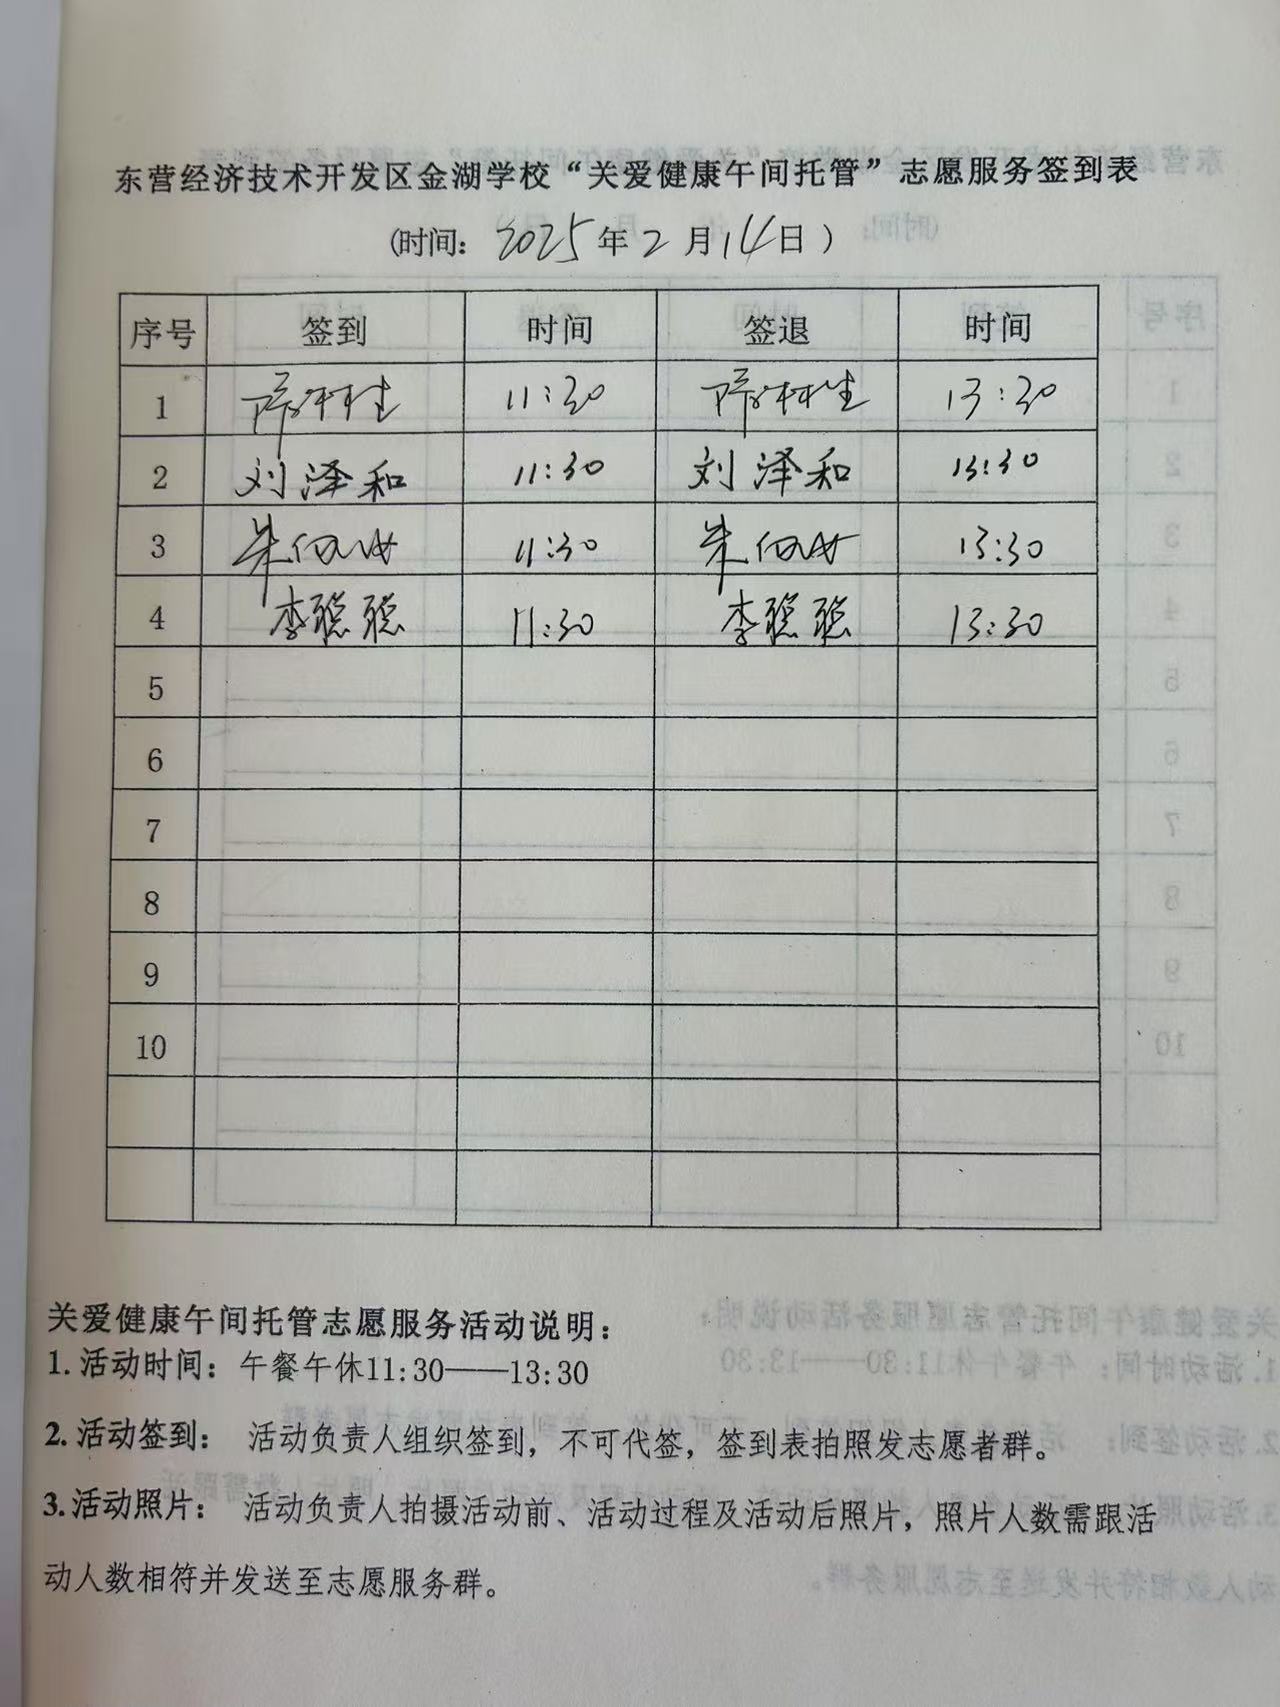 东营经济技术开发区金湖学校“关爱健康午间托管”志愿服务签到表
(时间: 2025年2月14日)
序号 签到 时间 签退 时间
1 11:30 13:30
2 刘泽和 11:30 刘泽和 13:30
3 朱 11:30 朱 13:30
4 李聪聪 11:30 李聪聪 13:30
5
6
7
8
9
10
关爱健康午间托管志愿服务活动说明:
1.活动时间: 午餐午休11:30——13:30
2.活动签到: 活动负责人组织签到,不可代签,签到表拍照发志愿者群。
3.活动照片: 活动负责人拍摄活动前、活动过程及活动后照片,照片人数需跟活
动人数相符并发送至志愿服务群。